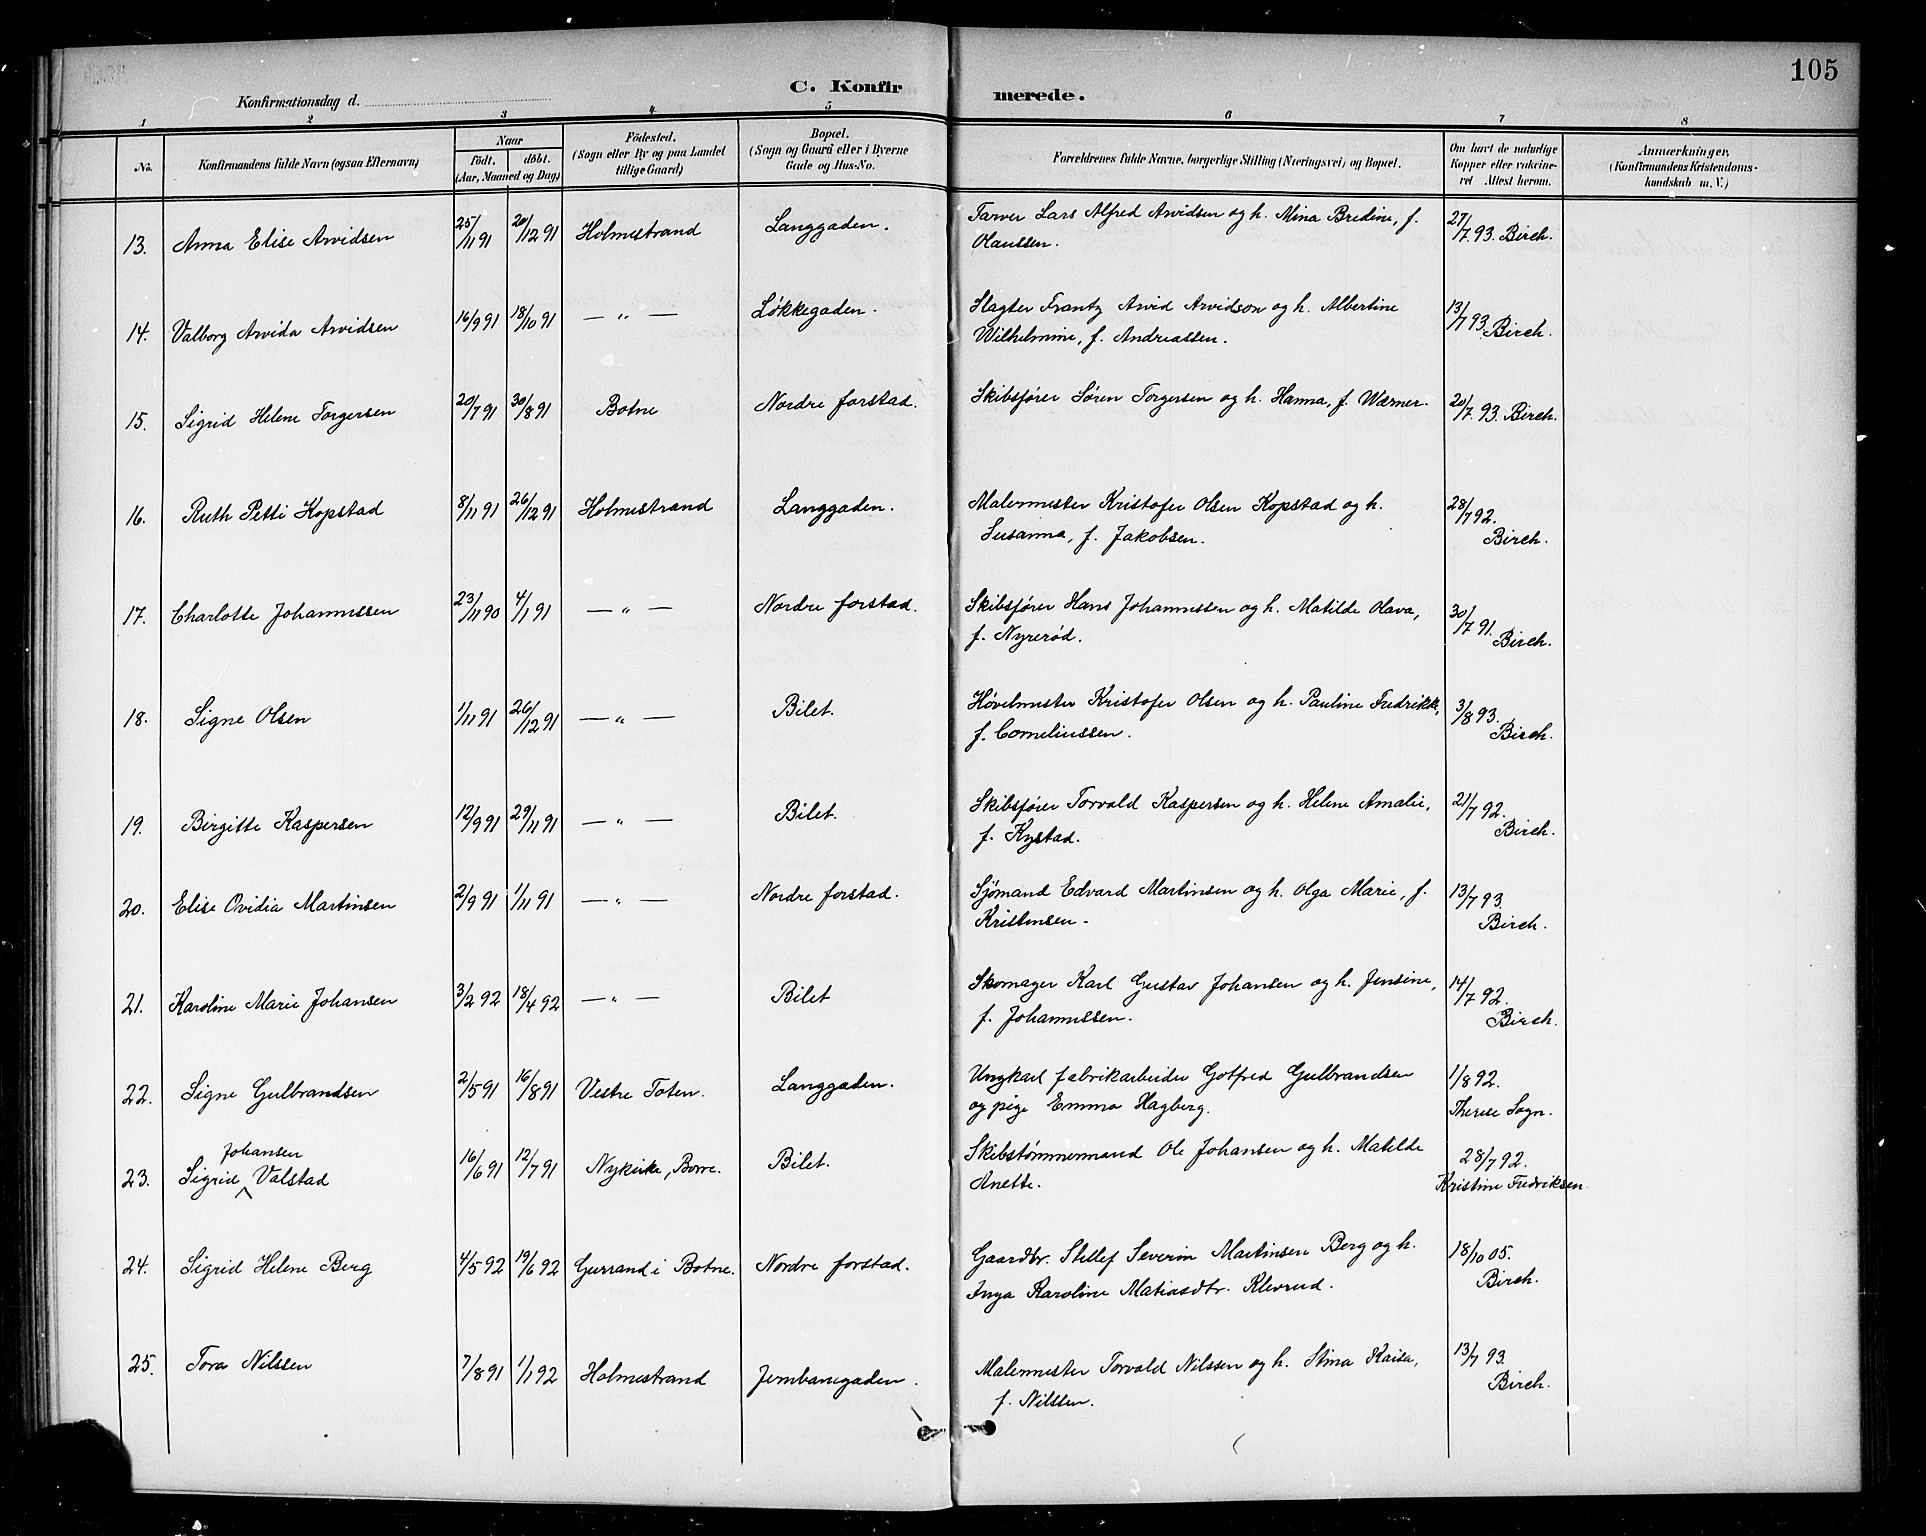 105
C. Konfir merede.
Konfirmationsdag d.
1 2 3 4 5 6 7 8
No.
Konfirmandens fulde Navn (ogsaa Efternavn)
Naar
födt. döbt.
(Aar, Maaned og Dag)
Födested.
(Sogn eller By og paa Landet
tillige Gaard)
Bopæl.
(Sogn og Gaard eller i Byerne
Gade og Hus-No.
Forældrenes fulde Navne, borgerlige Stilling (Næringsvei) og Bopæl.
Om havt de naturlige
Kopper eller vakcine-
ret Attest herom.
Anmærkninger,
(Konfirmandens Kristendoms-
kundskab m. V.)
13. Anna Elise Arvidsen 25/11 91 20/12 91 Holmestrand Langgaden. Farver Lars Alfred Arvidsen og h. Mina Bredine, f. 27/7.93. Birch.
Olaussen.
14. Valborg Arvida Arvidsen 16/9 91 18/10 91 — " — Løkkegaden. Slagter Frantz Arvid Arvidson og h. Albertine 13/7 93. Birch.
Wilhelmine, f. Andreassen.
15. Sigrid Helene Torgersen 20/7 91 30/8 91 Botne Nordre forstad. Skibsfører Søren Torgersen og h. Hanna, f. Wærner. 20/7. 93. Birch.
16. Ruth Petti Kopstad 8/11 91 26/12 91 Holmestrand Langgaden. Malermester Kristofer Olsen Kopstad og h. 28/7 92.
Susanna, f. Jakobsen. Birch.
17. Charlotte Johannessen 23/11 90 4/1 91 — " — Nordre forstad. Skibsfører Hans Johannessen og h. Matilde Olava, 30/7 91.
f. Nyrerød. Birch.
18. Signe Olsen 1/11 91 26/12 91 — " — Bilet. Høvelmester Kristofer Olsen og h. Pauline Fredrikke, 3/8 93.
f. Corneliussen. Birch.
19. Birgitte Kaspersen 12/9 91 29/11 91 — " — Bilet. Skibsfører Torvald Kaspersen og h. Helene Amalie, 21/7 92.
f. Kystad. Birch.
20. Elise Ovidia Martinsen 2/9 91 1/11 91 — " — Nordre forstad. Sjømand Edvard Martinsen og h. Olga Marie, f. 13/7 93.
Kristensen. Birch.
21. Karoline Marie Johansen 3/2 92 18/4 92 — " — Bilet Skomager Karl Gustav Johansen og h. Jensine, 14/7 92.
f. Johannessen. Birch.
22. Signe Gulbrandsen 2/5 91 16/8 91 Vestre Toten. Langgaden. Ungkarl fabrikarbeider Gotfred Gulbrandsen 1/8 92.
og pige Emma Hagberg. Therese Sogn.
Johansen
23. Sigrid Valstad 16/6 91 12/7 91 Nykirke, Borre. Bilet. Skibstømmermand Ole Johansen og h. Matilde 28/7 92.
Anette. Kristine Fredriksen.
24. Sigrid Helene Berg 4/5 92 19/6 92 Gurrand i Botne. Nordre forstad. Gaardbr. Stillef Severin Martinsen Berg og h. 18/10 05.
Inga Karoline Matiasdtr. Klevrud. Birch.
25. Tora Nilssen 7/8 91 1/1 92 Holmestrand Jernbanegaden. Malermester Torvald Nilssen og h. Stina Kaisa, 13/7 93.
f. Nilssen. Birch.